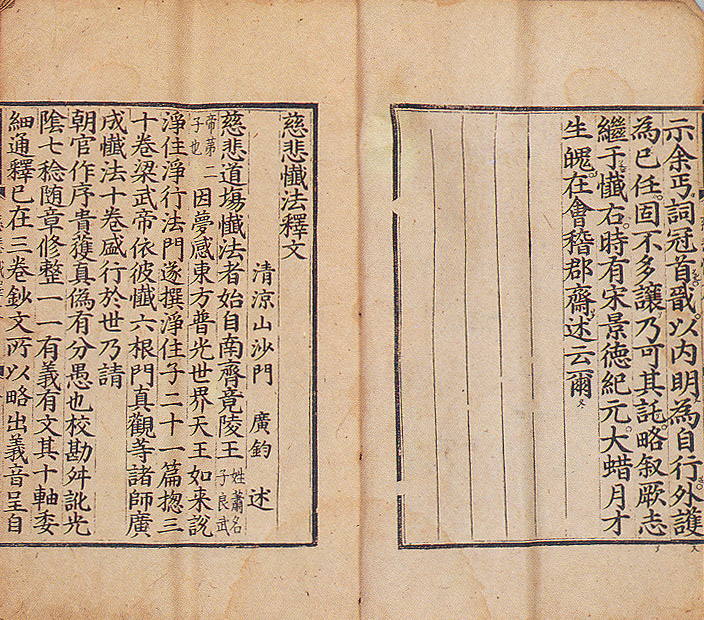 示余丐詞冠首戩以內明為自行外護
為已任固不多讓乃可其託略叙厥志
繼于懺右時有宋景徳紀元大蜡月才
生魄在會稽郡齋述云爾
慈悲懺法釋文
清涼山沙門 廣鈞 述
慈悲道塲懺法者始自南齊竟陵王姓蕭名子良武
帝第二子也因夢感東方普光世界天王如来說
淨住淨行法門遂撰淨住子二十一篇揔三
十卷梁武帝依彼懺六根門真觀等諸師廣
成懺法十卷盛行於世乃請
朝官作序貴獲真偽有分愚也校勘舛訛光
陰七稔随章修整一一有義有文其十軸委
細通釋已在三卷鈔文所以略出義音呈自